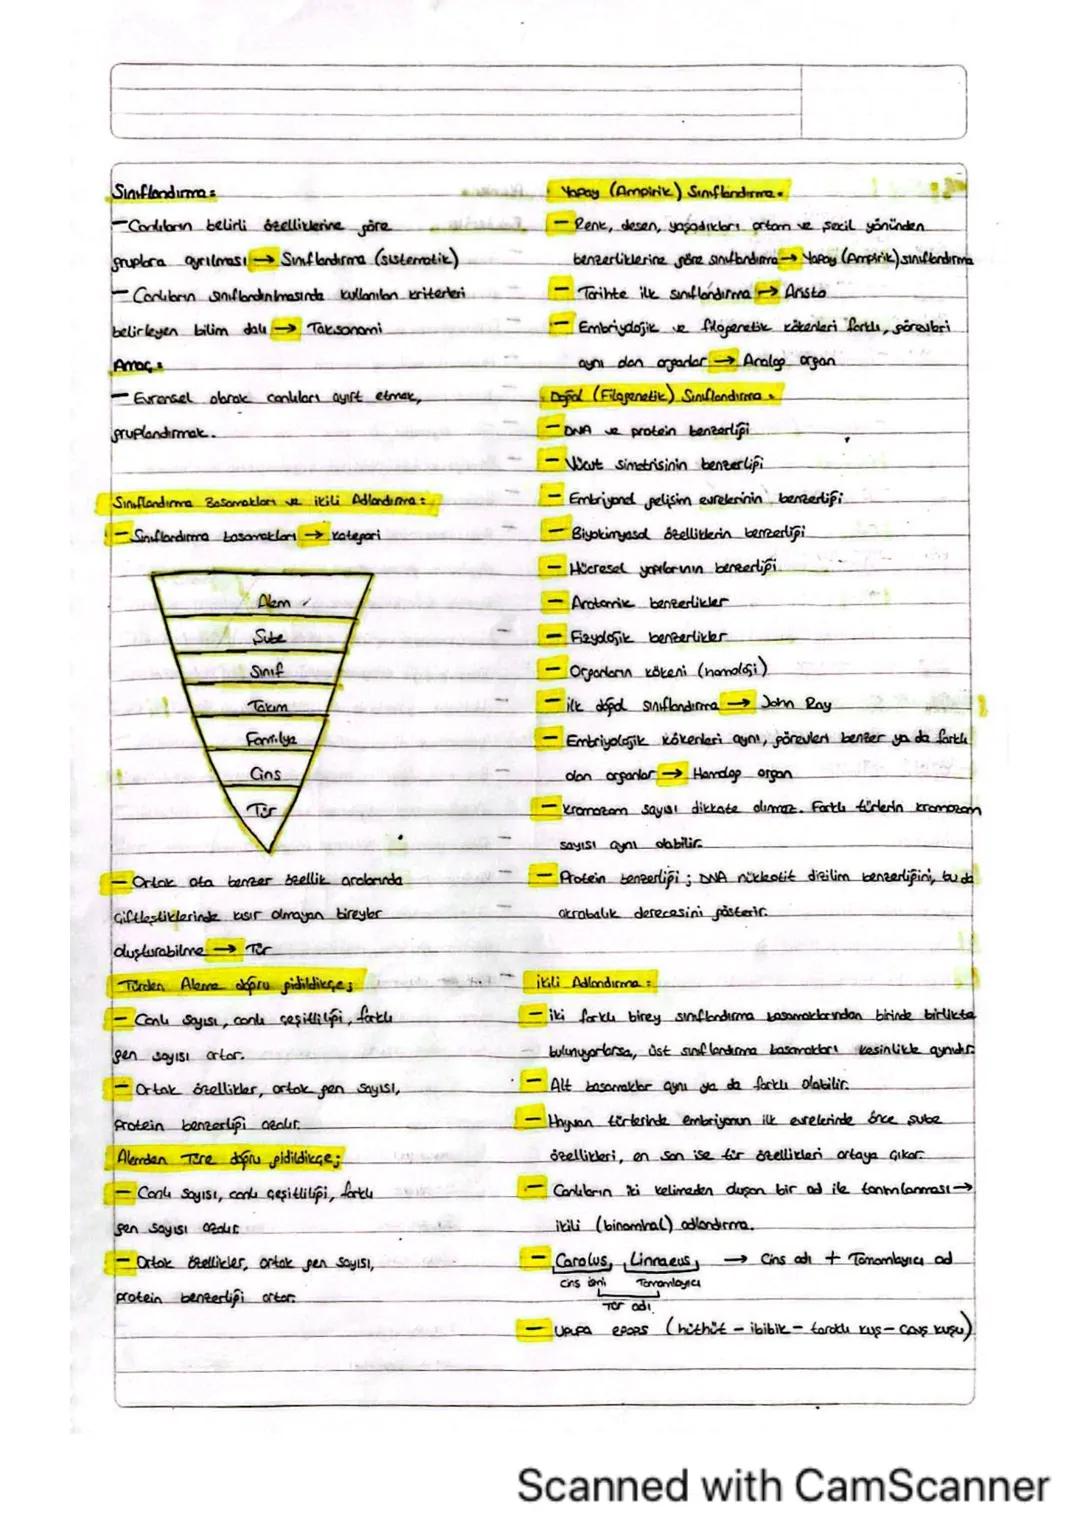 Sınıflandırma:
— Canlıların belirli özelliklerine göre
gruplara ayrılması → Sınıflandırma (sistematik)
— Canlıların sınıflandırılmasında kullanılan kriterleri
belirleyen bilim dalı → Taksonomi
Amaç:
— Evrensel olarak canlıları ayırt etmek,
gruplandırmak.
Sınıflandırma Basamakları ve ikili Adlandırma:
— Sınıflandırma basamakları → Kategori
Alem
Şube
Sınıf
Takım
Familya
Cins
Tür
— Ortak ata benzer özellik aralarında
çiftleştiklerinde kısır olmayan bireyler
oluşturabilme → Tür
Türden Aleme doğru gidildikçe;
— Canlı sayısı, canlı çeşitliliği, farklı
gen sayısı artar.
— Ortak özellikler, ortak gen sayısı,
Protein benzerliği azalır.
Alemden Türe doğru gidildikçe;
— Canlı sayısı, canlı çeşitliliği, farklı
gen sayısı azalır.
— Ortak özellikler, ortak gen sayısı,
protein benzerliği artar.
Yapay (Ampirik) Sınıflandırma:
— Renk, desen, yaşadıkları ortam ve şekil yönünden
benzerliklerine göre sınıflandırma → Yapay (Ampirik) sınıflandırma
— Tarihte ilk sınıflandırma → Aristo
— Embriyolojik ve filogenetik kökenleri farklı, görevleri
aynı olan organlar → Analog organ
Doğal (Filogenetik) Sınıflandırma:
— DNA ve protein benzerliği
— Vücut simetrisinin benzerliği
— Embriyonel gelişim evrelerinin benzerliği
— Biyokimyasal özelliklerin benzerliği
— Hücresel yapılarının benzerliği
— Anatomik benzerlikler
— Fizyolojik benzerlikler
— Organların kökeni (homoloji)
— ilk doğal sınıflandırma → John Ray
— Embriyolojik kökenleri aynı, görevleri benzer ya da farklı
olan organlar → Homolog organ
— Kromozom sayısı dikkate alınmaz. Farklı türlerin kromozom
sayısı aynı olabilir.
— Protein benzerliği; DNA nükleotit dizilim benzerliğini, bu da
akrabalık derecesini gösterir.
ikili Adlandırma:
— iki farklı birey sınıflandırma basamaklarından birinde birlikte
bulunuyorlarsa, üst sınıflandırma basamakları kesinlikle aynıdır.
— Alt basamaklar aynı ya da farklı olabilir.
— Hayvan türlerinde embriyonun ilk evrelerinde önce şube
özellikleri, en son ise tür özellikleri ortaya çıkar.
— Canlıların iki kelimeden oluşan bir ad ile tanımlanması →
ikili (binominal) adlandırma.
— Carolus Linnaeus → Cins adı + Tanımlayıcı ad
cins ismi Tanımlayıcı
Tür adı
— Upupa epops (hüthüt - ibibik - taraklı kuş - çavuş kuşu)
Scanned with CamScanner